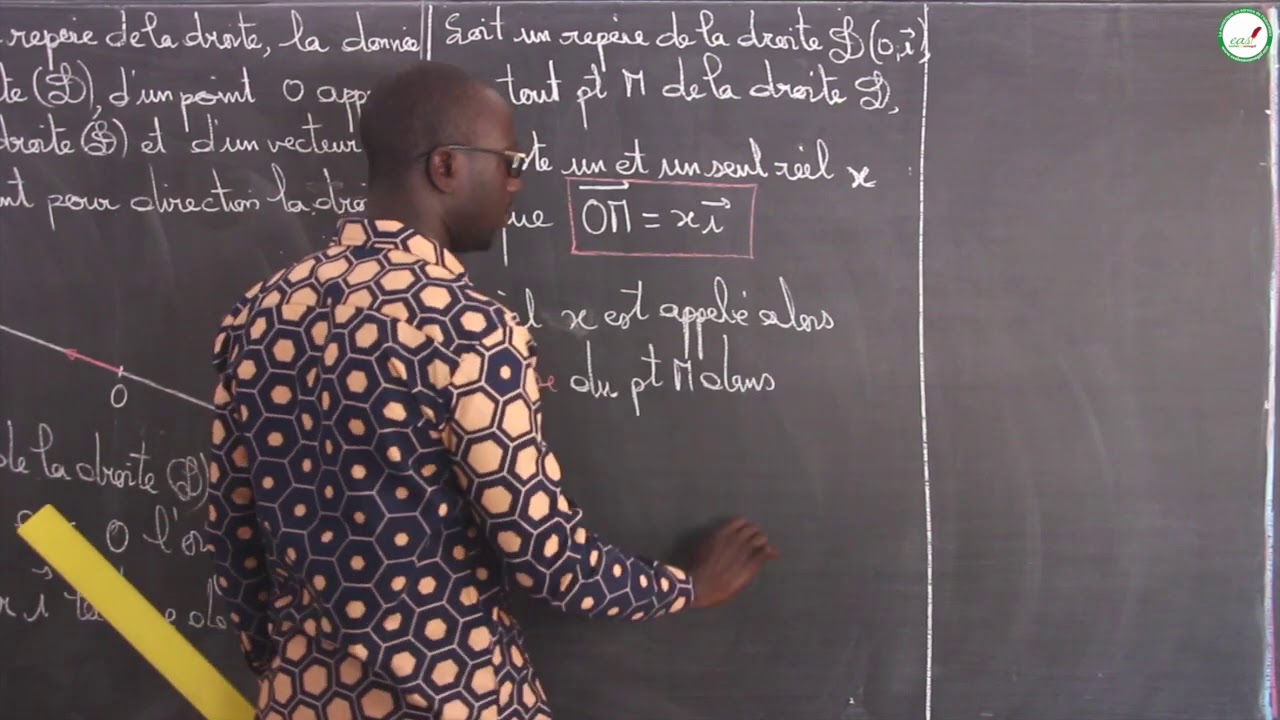 repère de la droite, la donnée
(𝒟), d'un point O
droite (𝒟) et d'un vecteur
pour direction la
O
de la droite (𝒟)
O l'
i⃗
Soit un repère de la droite 𝒟 (O, i⃗)
tout pt M de la droite 𝒟,
un et un seul réel x
que OM⃗ = x i⃗
x est appelé alors
du pt M dans
eas!